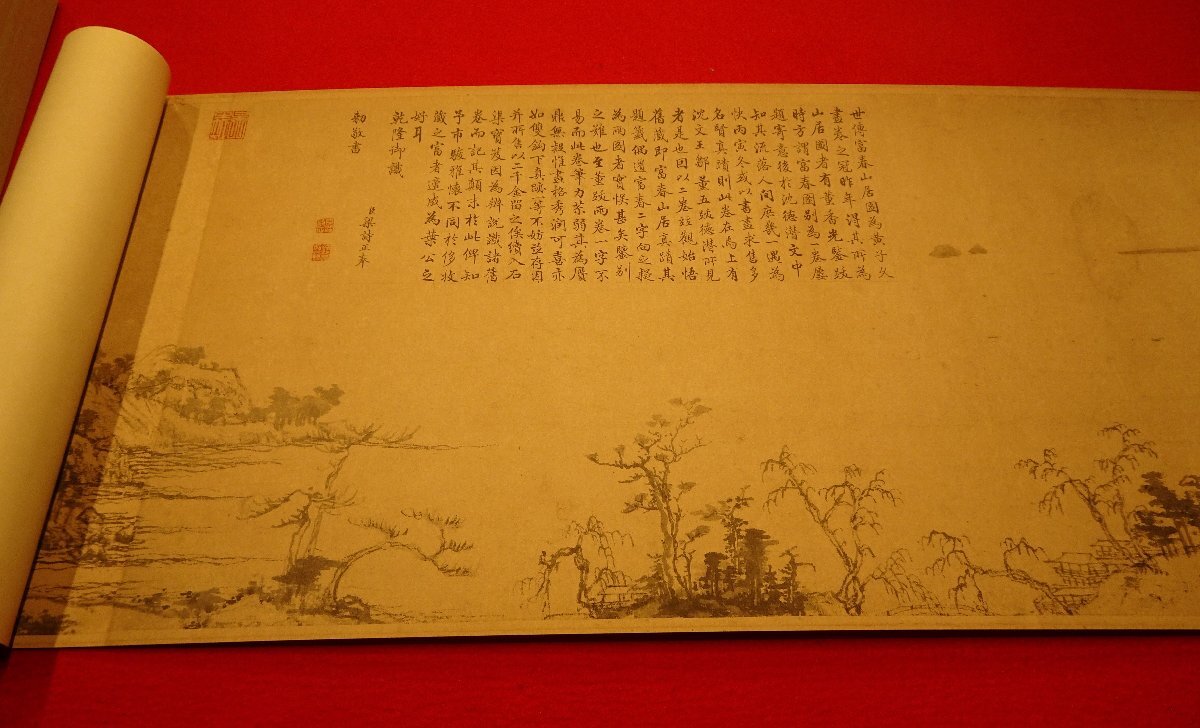 世傳富春山居圖為黃子久
畫卷之冠昨年得其所為
山居圖者有董香光鑒跋
時方謂富春圖別為一卷屢
題寄意後於沈德潛文中
知其流落人間庶幾一遇為
快丙寅冬或以書畫求售多
名賢真蹟則此卷在焉上有
沈文王鄒董五跋德潛所見
者是也因以二卷並觀始悟
舊藏即富春山居真蹟其
題籤偶遺富春二字向之疑
為兩圖者實悞甚矣鑒別
之難也至董跋兩卷一字不
易而此卷筆力苶弱其為贗
鼎無疑惟畫格秀潤可喜亦
如雙鉤下真蹟一等不妨並存因
并所售以二千金留之俟續入石
渠寶笈因為辨說識諸舊
卷而記其顛末於此俾知
予市駿雅懷不同於侈收
藏之富者遑或為葉公之
好耳
乾隆御識
臣梁詩正奉
勅敬書